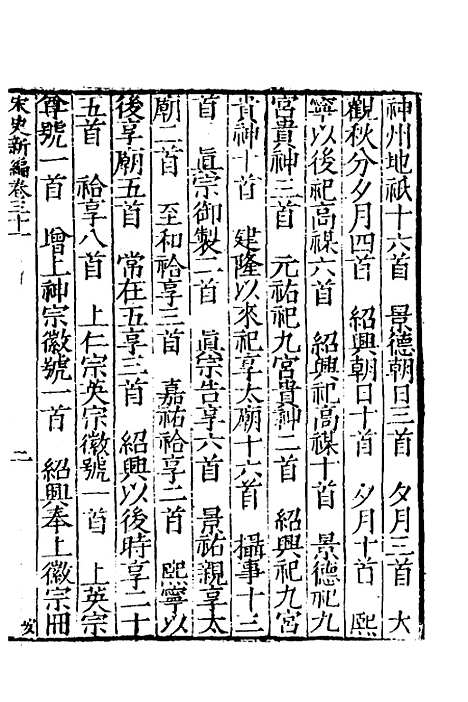 神州地祇十六首　景德朝日三首　夕月三首　大
觀秋分夕月四首　紹興朝日十首　夕月十首　熙
寧以後祀高禖六首　紹興祀高禖十首　景德祀九
宮貴神三首　元祐祀九宮貴神二首　紹興祀九宮
貴神十首　建隆以來祀享太廟十六首　攝事十三
首　眞宗御製二首　眞宗告享六首　景祐親享太
廟二首　至和祫享三首　嘉祐祫享二首　熙寧以
後享廟五首　常在五享三首　紹興以後時享二十
五首　祫享八首　上仁宗英宗徽號一首　上英宗
尊號一首　增上神宗徽號一首　紹興奉上徽宗冊
宋史新編卷三十一
二